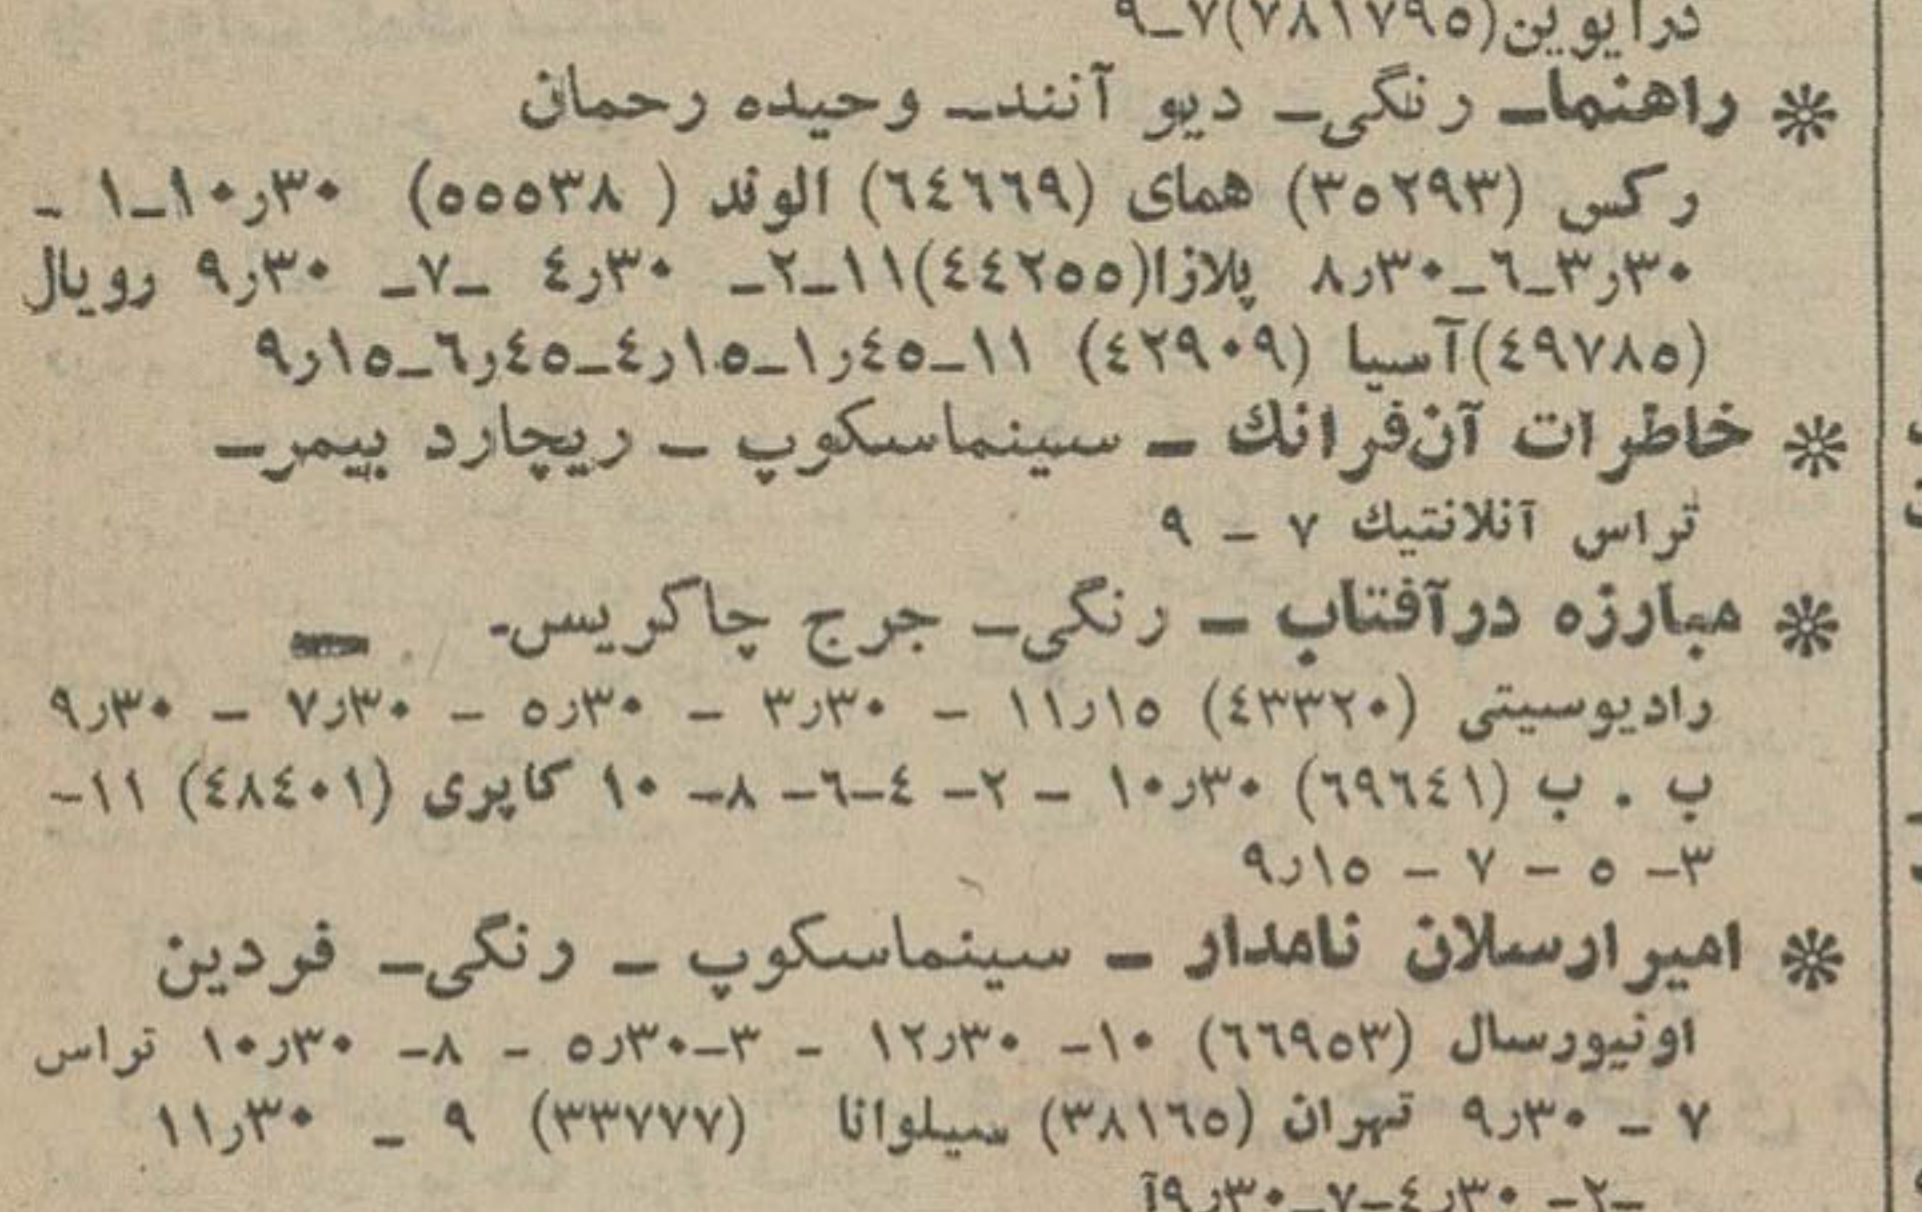 درایوین(۷۸۱۷۹۵)۷ـ۹
* راهنماـ رنگی ـ دیو آنندـ وحیده رحمان
رکس (۳۵۲۹۳) همای (٦٤٦٦۹) الوند ( ۵۵۵۳۸) ۱۰٫۳۰ـ۱ ـ
۳٫۳۰ـ٦ـ۸٫۳۰ پلازا(٤٤۲۵۵)۱۱ـ۲ـ ٤٫۳۰ ـ۷ـ ۹٫۳۰ رویال
(٤۹۷۸۵)آسیا (٤۲۹۰۹) ۱۱ـ۱٫٤۵ـ٤٫۱۵ـ٦٫٤۵ـ۹٫۱۵
* خاطرات آن‌فرانك ـ سینماسکوپ ـ ریچارد بیمرـ
تراس آتلانتیك ۷ ـ ۹
* مبارزه درآفتاب ـ رنگی ـ جرج چاکریس-
رادیوسیتی (٤۳۳۲۰) ۱۱٫۱۵ - ۳٫۳۰ - ۵٫۳۰ - ۷٫۳۰ - ۹٫۳۰
ب . ب (٦۹٦٤۱) ۱۰٫۳۰ - ۲- ٤-٦- ۸- ۱۰ کاپری (٤۸٤۰۱) ۱۱-
۳- ۵ - ۷ - ۹٫۱۵
* امیرارسلان نامدار ـ سینماسکوپ ـ رنگی ـ فردین
اونیورسال (٦٦۹۵۳) ۱۰- ۱۲٫۳۰ - ۳-۵٫۳۰ - ۸- ۱۰٫۳۰ تراس
۷ - ۹٫۳۰ تهران (۳۸۱٦۵) سیلوانا (۳۳۷۷۷) ۹ - ۱۱٫۳۰
-۲- ٤٫۳۰-۷-۹٫۳۰آ